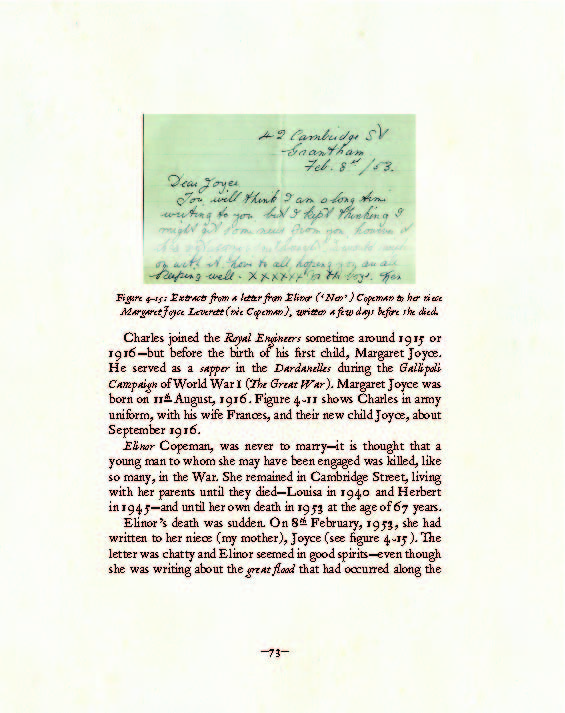 42 Cambridge St
Grantham
Feb. 8th /53.
Dear Joyce
You will think I am a long time
writing to you but I kept thinking I
might get some news from you
on with it. love to all hoping you are all
keeping well. xxxxxx for the boys. Nen
Figure 4-15: Extracts from a letter from Elinor (‘Nen’) Copeman to her niece
Margaret Joyce Leverett (née Copeman), written a few days before she died.
Charles joined the Royal Engineers sometime around 1915 or
1916—but before the birth of his first child, Margaret Joyce.
He served as a sapper in the Dardanelles during the Gallipoli
Campaign of World War I (The Great War). Margaret Joyce was
born on 11th August, 1916. Figure 4-11 shows Charles in army
uniform, with his wife Frances, and their new child Joyce, about
September 1916.
Elinor Copeman, was never to marry—it is thought that a
young man to whom she may have been engaged was killed, like
so many, in the War. She remained in Cambridge Street, living
with her parents until they died—Louisa in 1940 and Herbert
in 1945—and until her own death in 1953 at the age of 67 years.
Elinor’s death was sudden. On 8th February, 1953, she had
written to her niece (my mother), Joyce (see figure 4-15). The
letter was chatty and Elinor seemed in good spirits—even though
she was writing about the great flood that had occurred along the
—73—